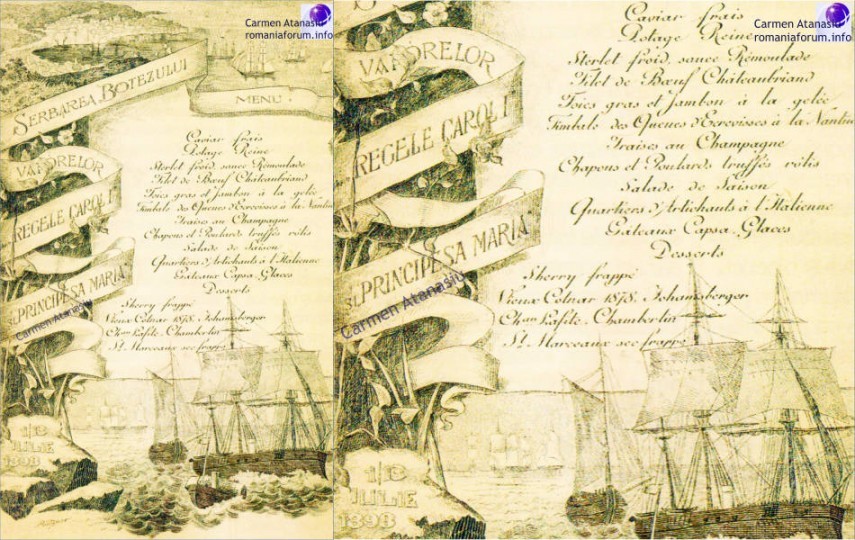 Carmen Atanasiu
romaniaforum.info
SERBAREA BOTEZULUI
MENU
VAPORELOR
REGELE CAROL I
SI PRINCIPESA MARIA
Caviar frais
Potage Reine
Sterlet froid, sauce Rémoulade
Filet de Bœuf Châteaubriand
Foies gras et Jambon à la gelée
Timbale des Queues d'Ecrevisses à la Nantua
Fraises au Champagne
Chapons et Poulards truffés rôtis
Salade de Saison
Quartiers d'Artichauts à l'Italienne
Gâteaux Capsa, Glaces
Desserts
Sherry frappé
Vieux Cotnar 1878, Johannsberger
Chau Lafite, Chambertin
St Marceaux sec frappé
Carmen Atanasiu
1/13
IULIE
1898
Carmen Atanasiu
romaniaforum.info
VAPORELOR
REGELE CAROL I
SI PRINCIPESA MARIA
Caviar frais
Potage Reine
Sterlet froid, sauce Rémoulade
Filet de Bœuf Châteaubriand
Foies gras et Jambon à la gelée
Timbals des Queues d'Ecrevisses à la Nantua
Fraises au Champagne
Chapons et Poulards truffés rôtis
Salade de Saison
Quartiers d'Artichauts à l'Italienne
Gâteaux Capsa, Glaces
Desserts
Sherry frappé
Vieux Cotnar 1878, Johannsberger
Chau Lafite, Chambertin
St Marceaux sec frappé
Carmen Atanasiu
1/13
IULIE
1898